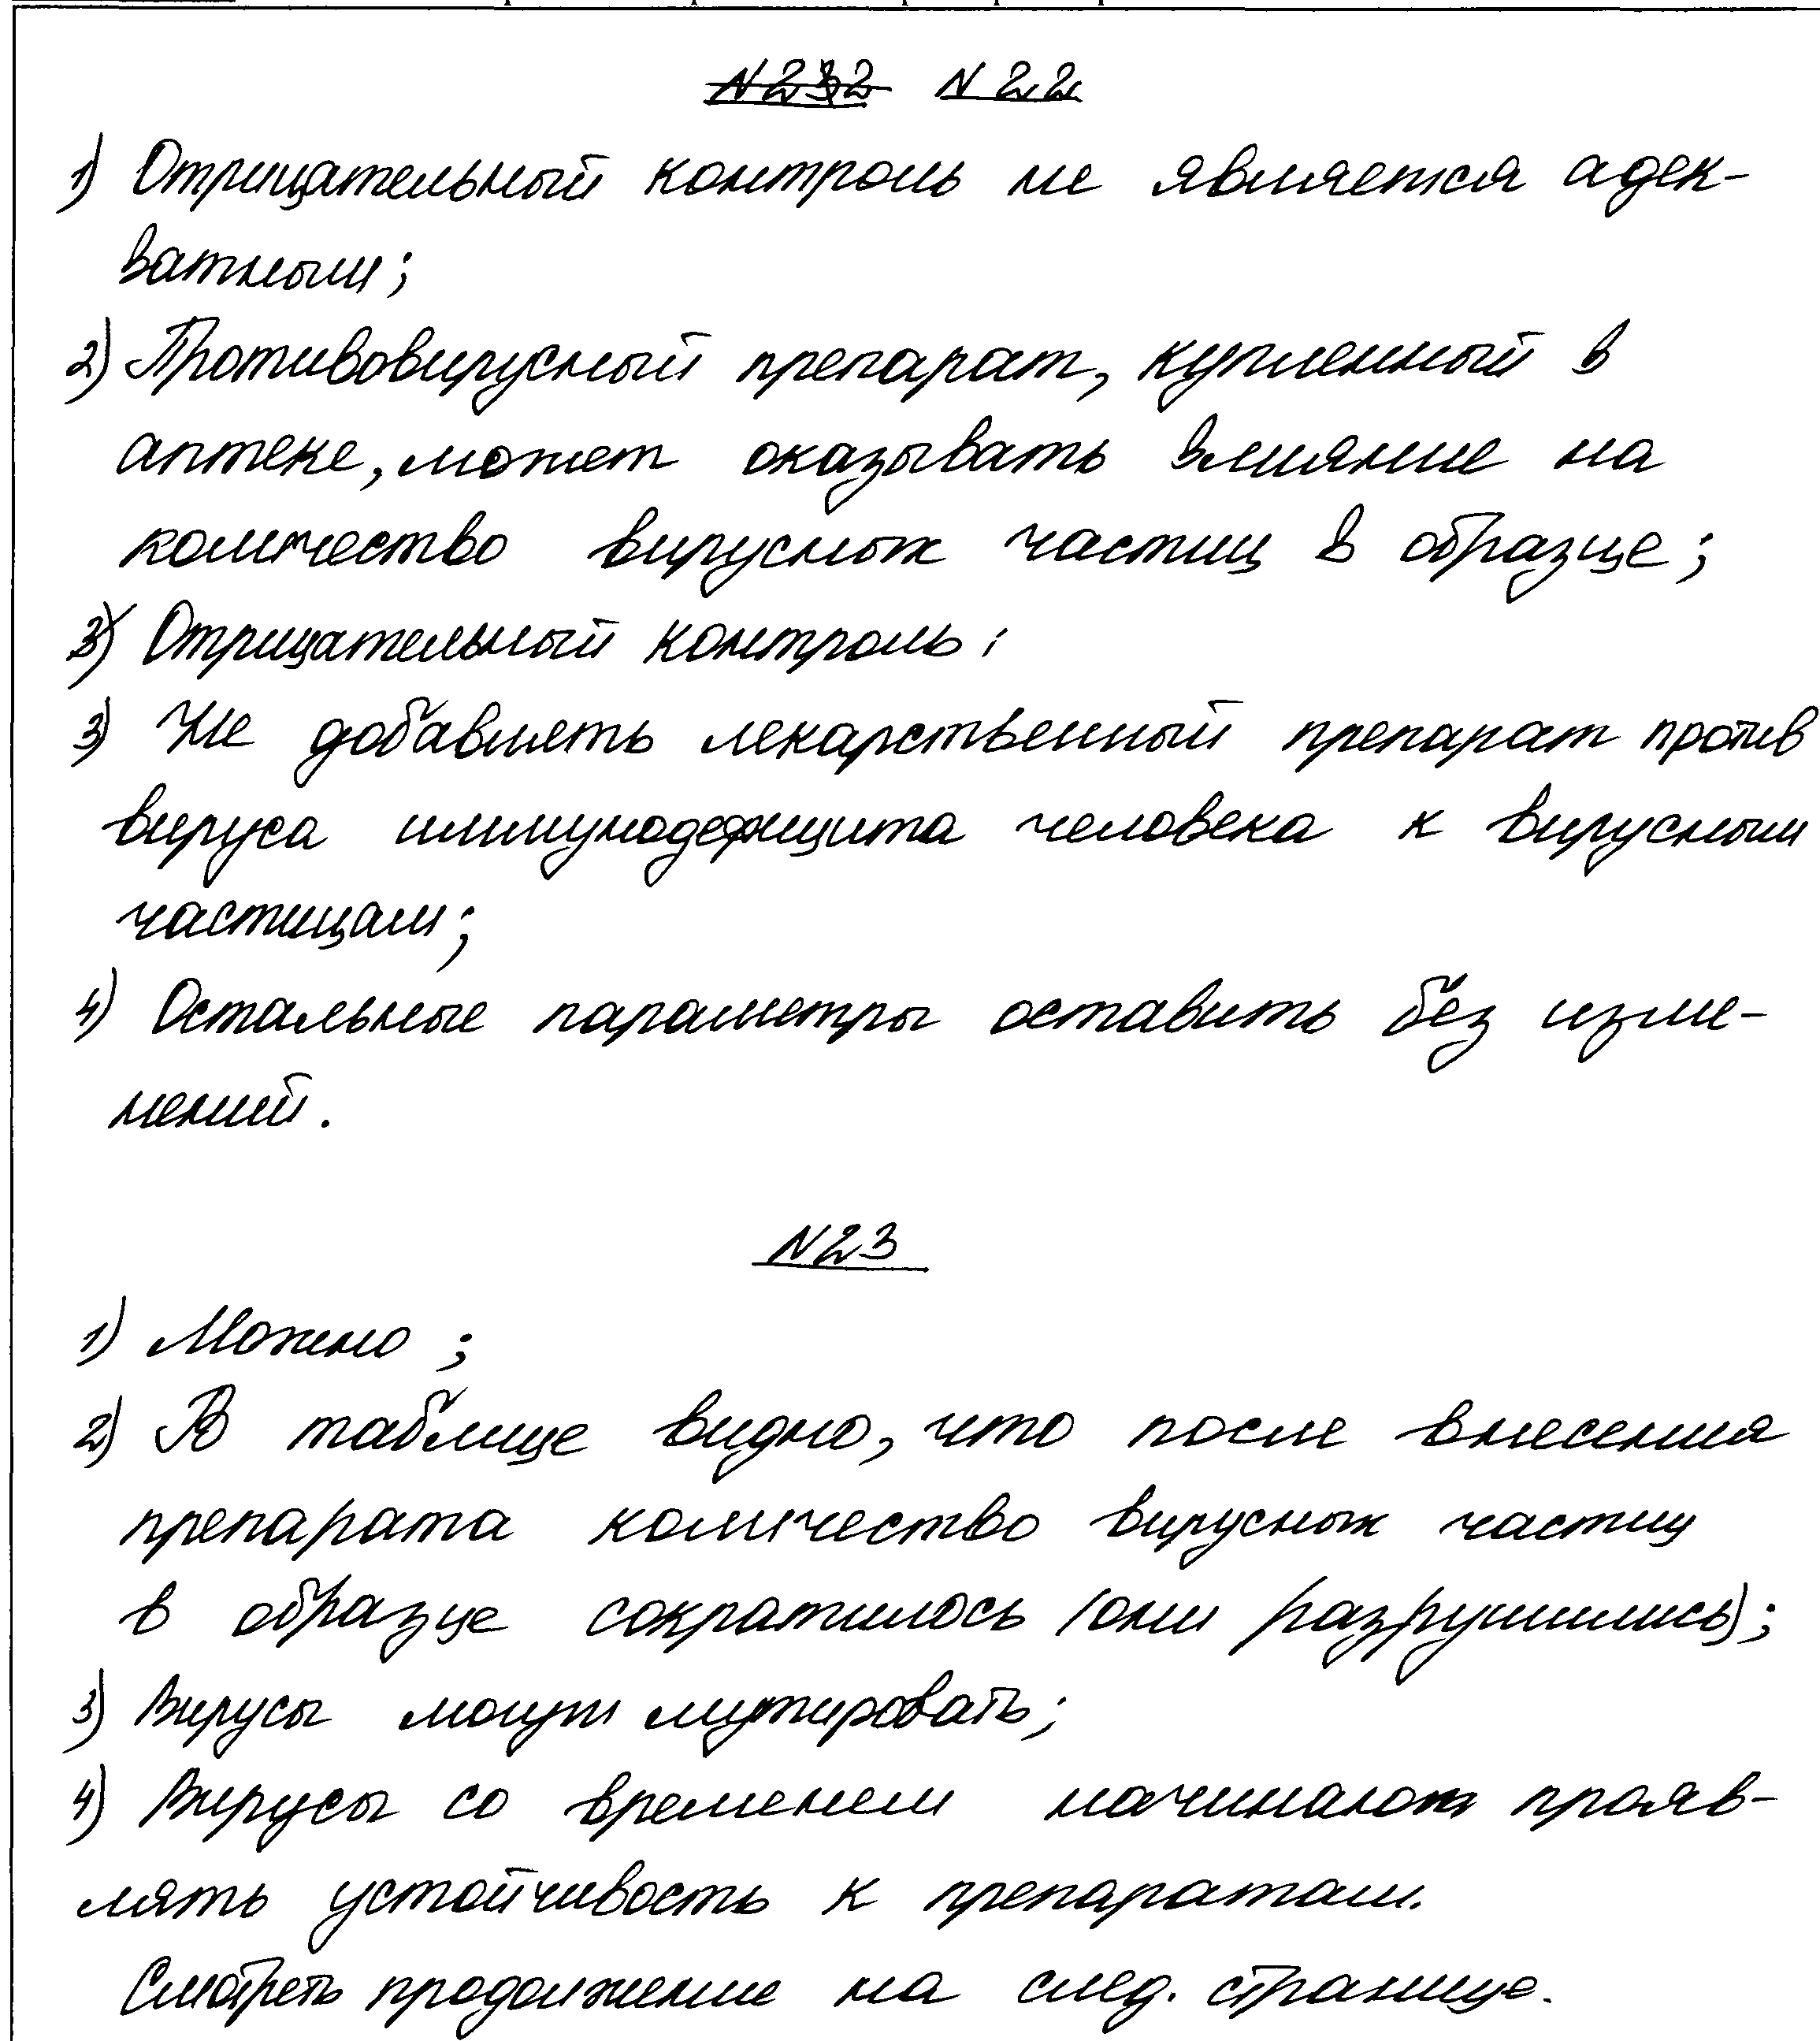 N 22
1) Отрицательный контроль не является адек-
ватным;
2) Противовирусный препарат, купленный в
аптеке, может оказывать влияние на
количество вирусных частиц в образце;
3) Отрицательный контроль:
3) Не добавлять лекарственный препарат против
вируса иммунодефицита человека к вирусным
частицам;
4) Остальные параметры оставить без изме-
нений.
N23
1) Можно;
2) В таблице видно, что после внесения
препарата количество вирусных частиц
в образце сократилось (они разрушились);
3) Вирусы могут мутировать;
4) Вирусы со временем начинают прояв-
лять устойчивость к препаратам.
Смотреть продолжение на след. странице.